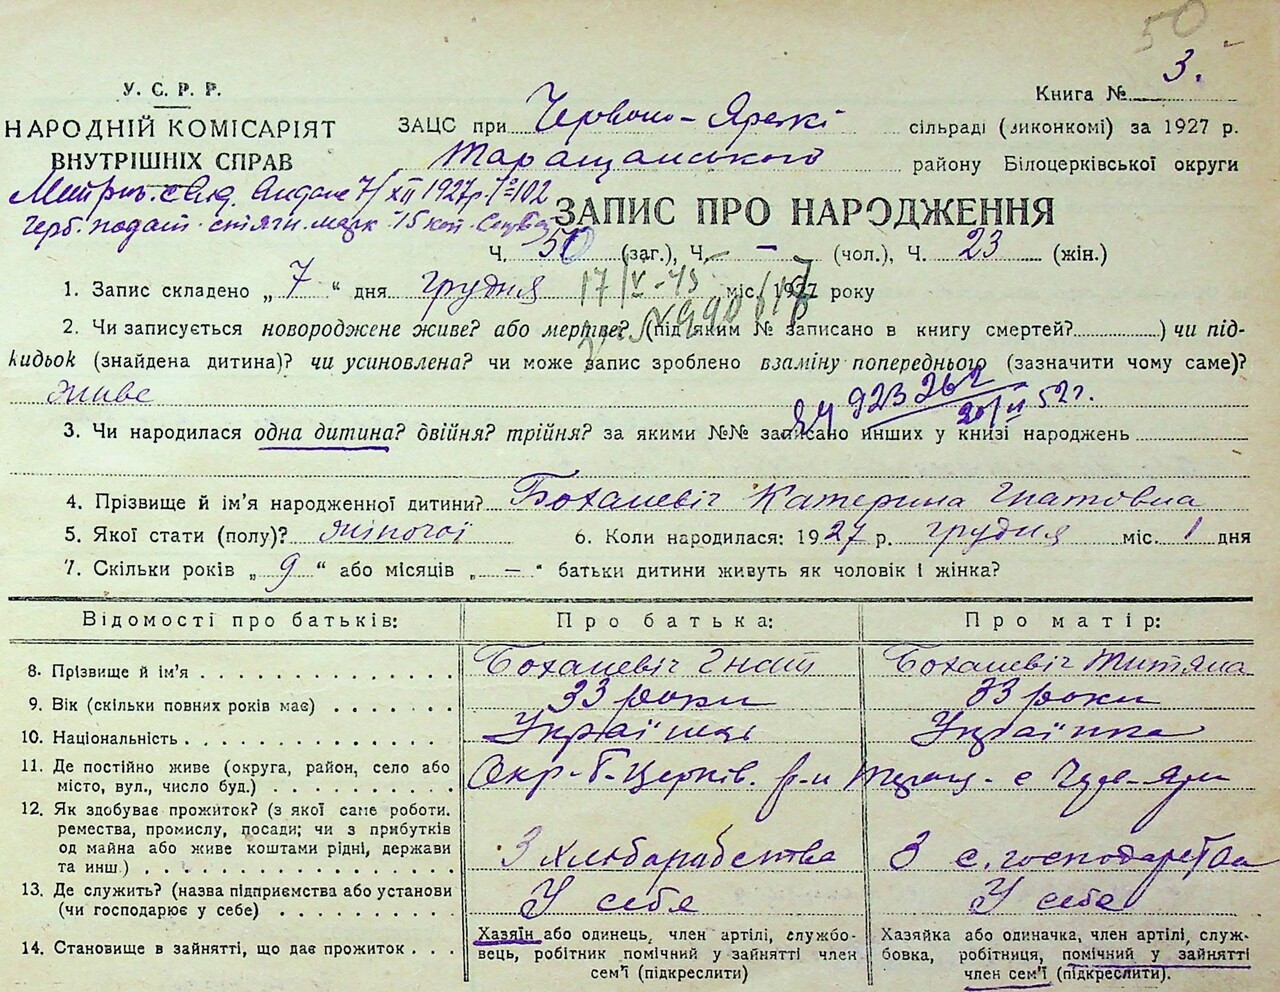 50
У. С. Р. Р.
Книга № 3.
НАРОДНІЙ КОМІСАРІЯТ
ВНУТРІШНІХ СПРАВ
ЗАЦС при Червоно-Ярські сільраді (виконкомі) за 1927 р.
Таращанського району Білоцерківської округи
7/XII 1927р. № 102
Герб. подат. марк 15 коп.
ЗАПИС ПРО НАРОДЖЕННЯ
Ч. 50 (заг.), Ч. – (чол.), Ч. 23 (жін.)
1. Запис складено „ 7 “ дня грудня міс. 1927 року
17/V-45
2. Чи записується новороджене живе? або мертве? (під яким № записано в книгу смертей?) чи під-
кидьок (знайдена дитина)? чи усиновлена? чи може запис зроблено взаміну попереднього (зазначити чому саме)?
живе
923262
52 г.
3. Чи народилася одна дитина? двійня? трійня? за якими №№ записано инших у книзі народжень
4. Прізвище й ім’я народженної дитини? Боханевіч Катерина Гнатовна
5. Якої стати (полу)? жіночої 6. Коли народилася: 1927 р. грудня міс. 1 дня
7. Скільки років „ 9 “ або місяців „ – “ батьки дитини живуть як чоловік і жінка?
Відомості про батьків: Про батька: Про матір:
8. Прізвище й ім’я Боханевіч Гнат Боханевіч Титяна
9. Вік (скільки повних років має) 33 роки 33 роки
10. Національність Українці Українка
11. Де постійно живе (округа, район, село або
місто, вул., число буд.) Окр-Б-Церків. р-н Таращ- с Черв-Яри
12. Як здобуває прожиток? (з якої саме роботи.
ремества, промислу, посади; чи з прибутків
од майна або живе коштами рідні, держави
та инш.) З хліборобства З с. господарства
13. Де служить? (назва підприємства або установи
(чи господарює у себе) У себя У себе
14. Становище в зайнятті, що дає прожиток
Хазяїн або одинець, член артілі, службо-
вець, робітник помічний у зайнятті член
сем’ї (підкреслити)
Хазяйка або одиначка, член артілі, служ-
бовка, робітниця, помічний у зайнятті
член сем’ї (підкреслити).